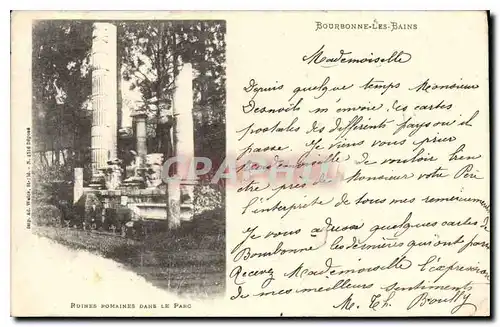 BOURBONNE-LES-BAINS
Mademoiselle
Depuis quelque temps Monsieur
Desnoës m'envoie les cartes
postales des différents pays où il
passe. Je viens vous prier
Mademoiselle de vouloir bien
être près de Monsieur votre Père
l'interprète de tous mes remerciements
Je vous adresse quelques cartes de
Bourbonne les dernières qui ont paru
Recevez Mademoiselle l'expression
de mes meilleurs sentiments
M. Th. Bouilly
RUINES ROMAINES DANS LE PARC
CPRHTC